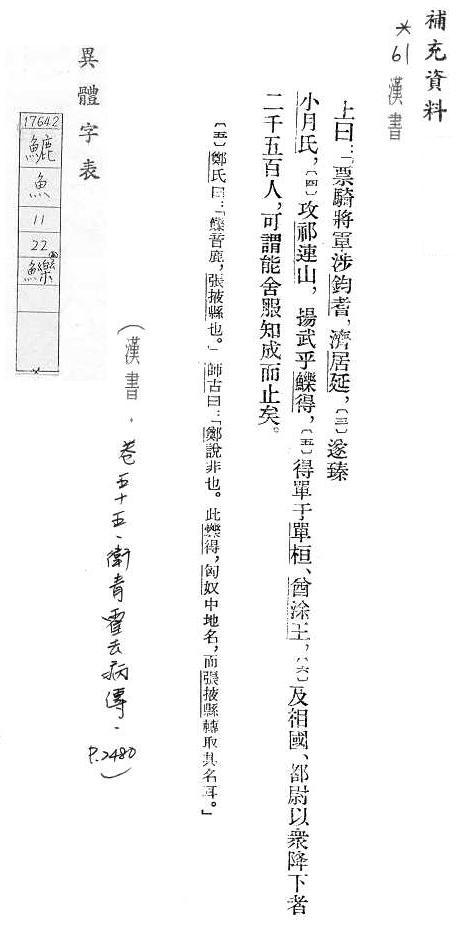 補充資料
*61漢書
上曰：「票騎將軍涉鈞耆，濟居延，〔三〕遂臻
小月氏，〔四〕攻祁連山，揚武乎鱳得，〔五〕得單于單桓、酋涂王，〔六〕及相國、都尉以眾降下者
二千五百人，可謂能舍服知成而止矣。
〔五〕鄭氏曰：「鱳音鹿，張掖縣也。」師古曰：「鄭說非也。此鱳得，匈奴中地名，而張掖縣轉取其名耳。」
（漢書．卷五十五．衛青霍去病傳．P.2480）
異體字表
17642
魚
11
22
鱳